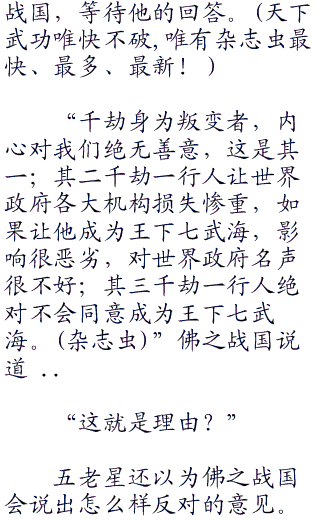 战国，等待他的回答。(天下
武功唯快不破,唯有杂志虫最
快、最多、最新！ )
“千劫身为叛变者，内
心对我们绝无善意，这是其
一；其二千劫一行人让世界
政府各大机构损失惨重，如
果让他成为王下七武海，影
响很恶劣，对世界政府名声
很不好；其三千劫一行人绝
对不会同意成为王下七武
海。(杂志虫)”佛之战国说
道 ..
“这就是理由？”
五老星还以为佛之战国
会说出怎么样反对的意见。